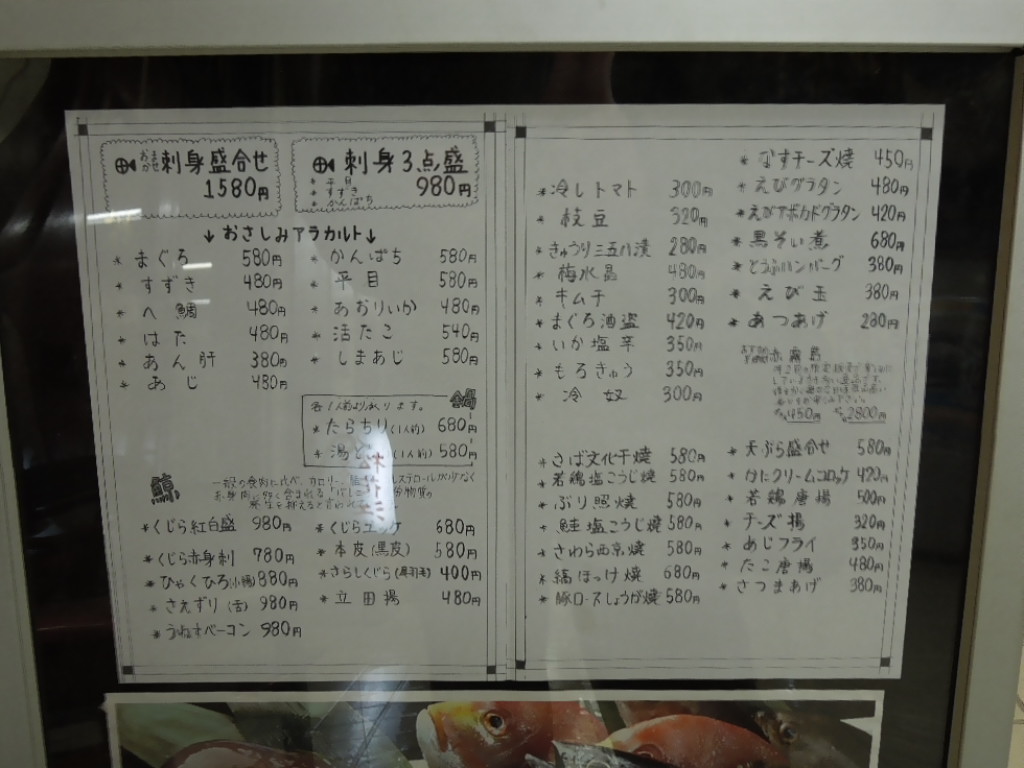 おまかせ 刺身盛合せ
1580円
刺身3点盛
* 平目
* すずき
* かんぱち
980円
↓ おさしみアラカルト↓
* まぐろ 580円
* すずき 480円
* へ鯛 480円
* はた 480円
* あん肝 380円
* あじ 480円
* かんぱち 580円
* 平目 580円
* あおりいか 480円
* 活たこ 540円
* しまあじ 580円
鍋
各1人前より承ります。
* たらちり(1人前) 680円
* 湯ど (1人前) 580円
鯨
*くじら紅白盛 980円
*くじら赤身刺 780円
*ひゃくひろ(小腸) 880円
* さえずり(舌) 980円
*うねすベーコン 980円
*くじらユッケ 680円
* 本皮(黒皮) 580円
*さらしくじら(尾羽毛) 400円
* 立田揚 480円
*冷しトマト 300円
* 枝豆 320円
*きゅうり三五八漬 280円
* 梅水晶 480円
* キムチ 300円
* まぐろ酒盗 420円
* いか塩辛 350円
* もろきゅう 350円
* 冷奴 300円
* なすチーズ焼 450円
* えびグラタン 480円
*えびアボカドグラタン 420円
* 黒そい煮 680円
* とうふハンバーグ 380円
* えび玉 380円
* あつあげ 280円
おすすめ 赤霧島
450円 2800円
* さば文化干焼 580円
* 若鶏塩こうじ焼 580円
* ぶり照焼 580円
*鮭塩こうじ焼 580円
* さわら西京焼 580円
* 縞ほっけ焼 680円
* 豚ロースしょうが焼 580円
* 天ぷら盛合せ 580円
* かにクリームコロッケ 420円
* 若鶏唐揚 500円
* チーズ揚 320円
* あじフライ 350円
* たこ唐揚 480円
* さつまあげ 380円